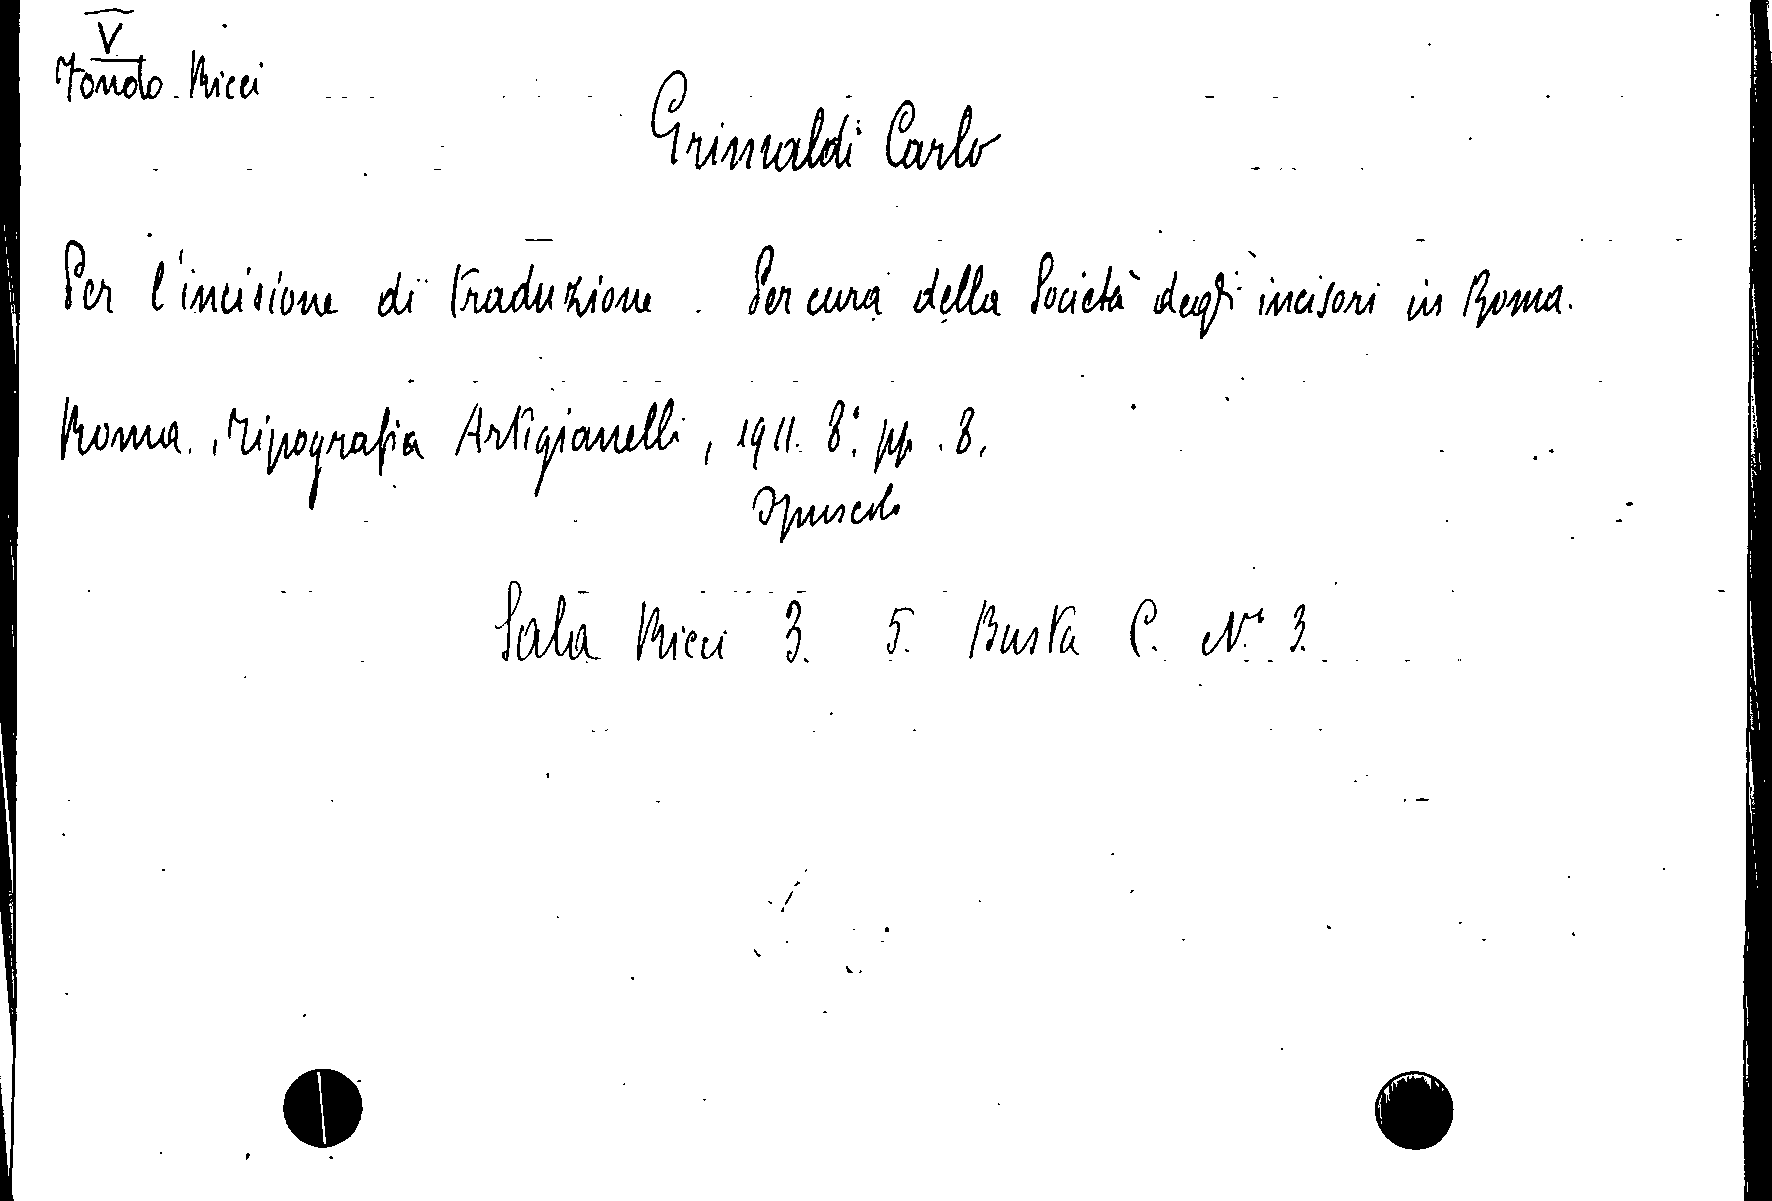 V
Fondo Ricci
Grimaldi Carlo
Per l'incisione di traduzione. Per cura della Società degl' incisori in Roma.
Roma. Tipografia Artigianelli, 1911. 8°. pp. 8.
Opuscolo
Sala Ricci 3. 5. Busta C. N° 3.